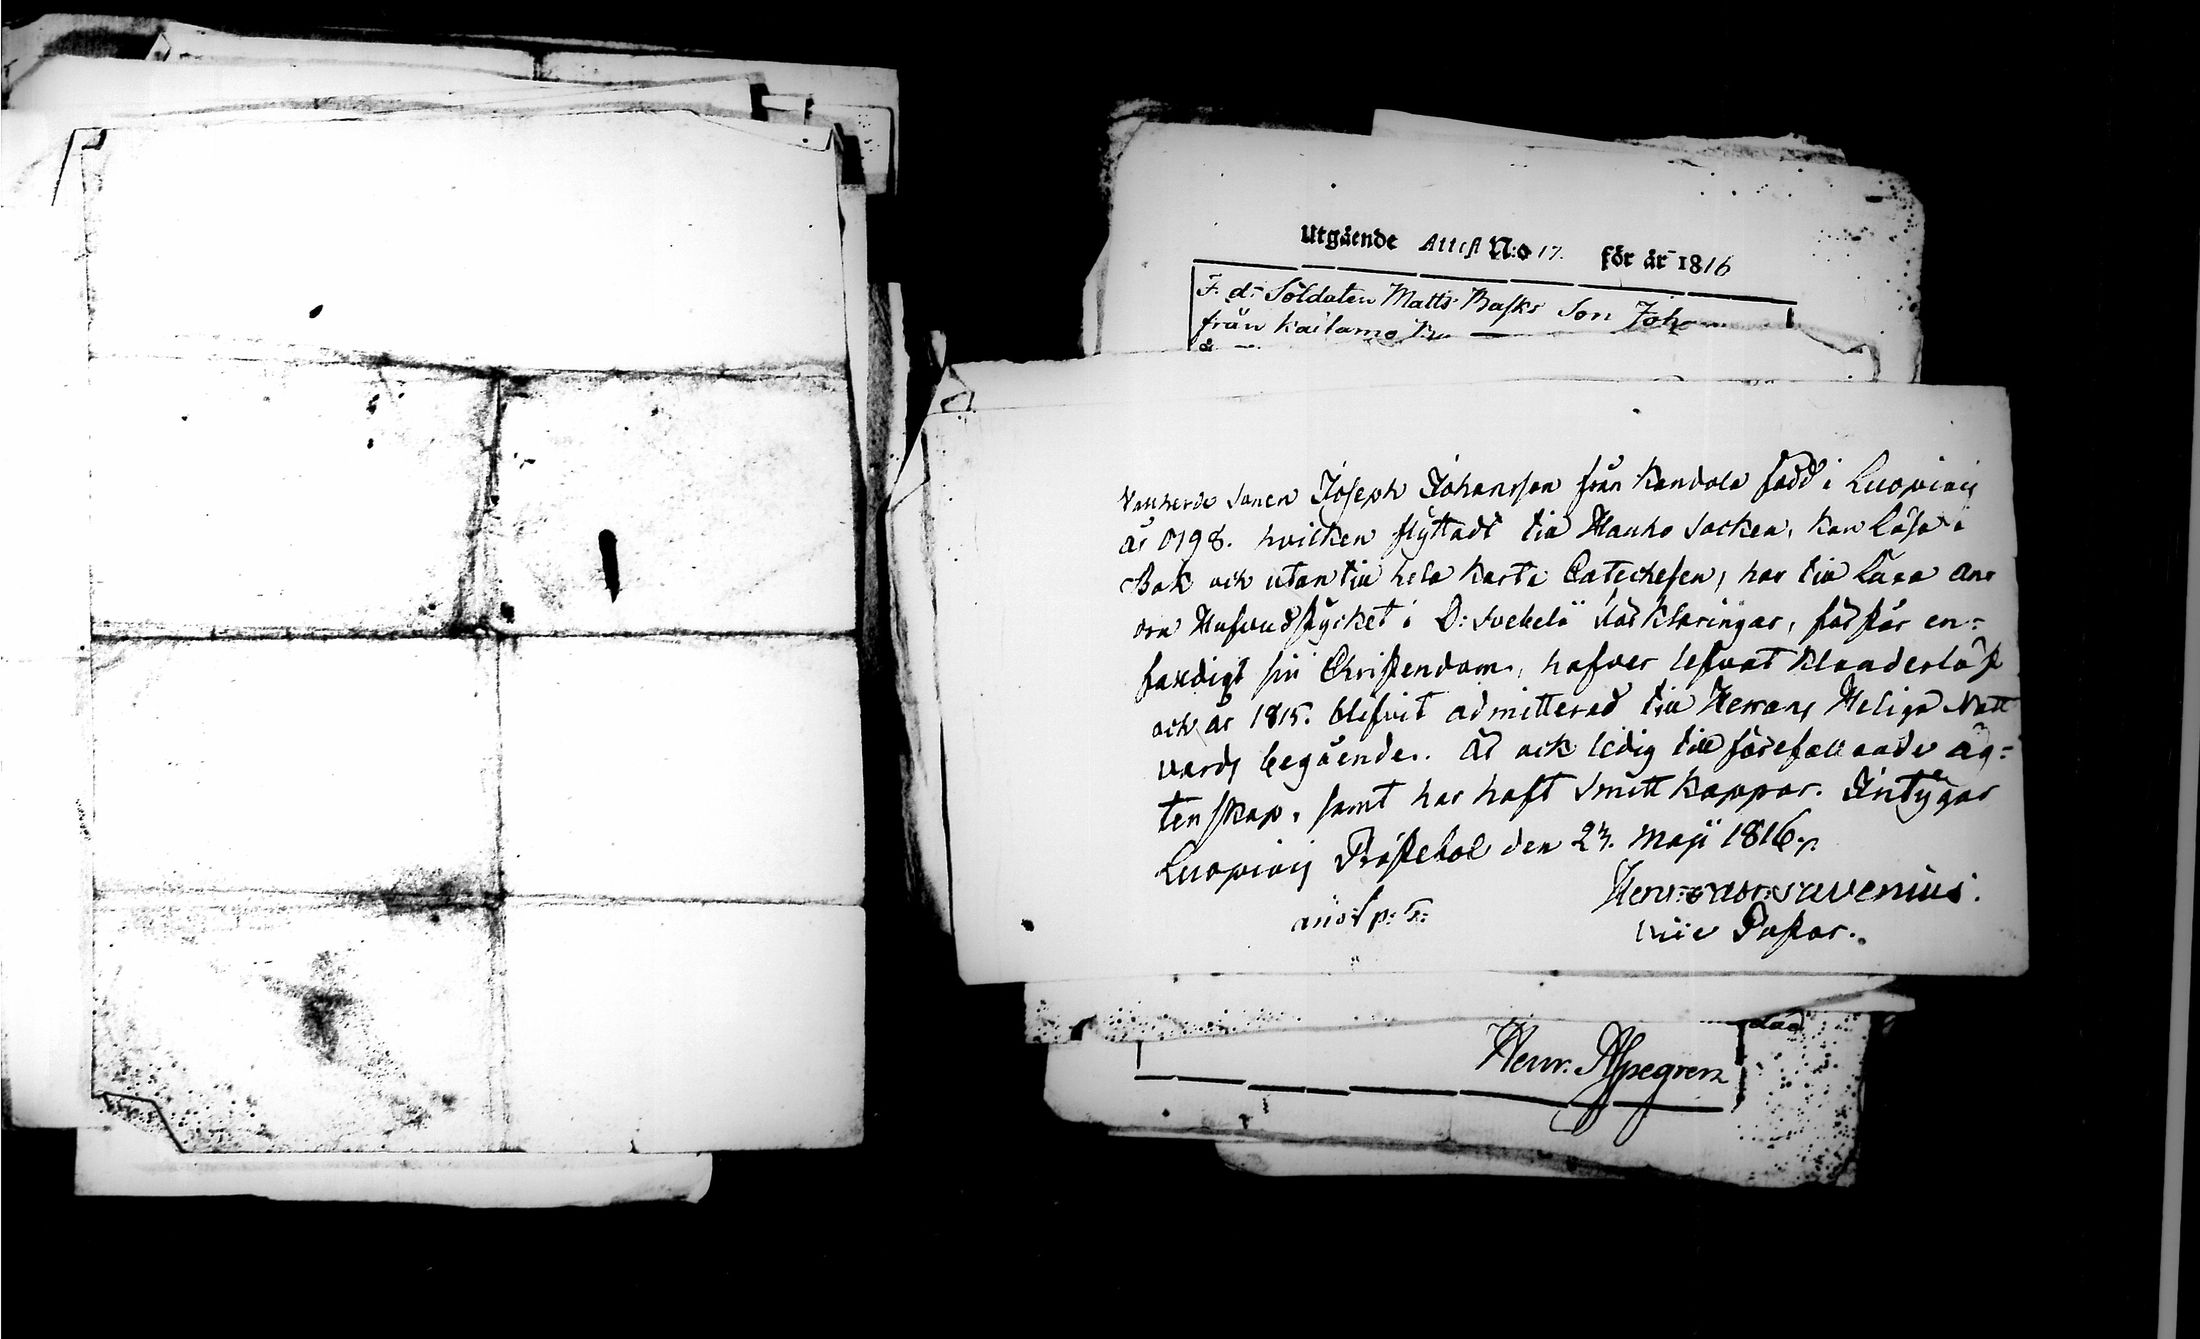 Utgående Attest N:o 17. för år 1816
F. d. Soldaten Matts Basks Son Joha
från Kailamo
sonen Joseph Johansson från Kandola född i Luopiois
år 1798. hvilken flyttadt till Hauho Socken, kan läsa i
Bok och utantill hela korta Catechesen, har till lära
Hufvudstycket i D: Svebelii förklaringar, förstår en-
faldigt sin Christendom, hafver lefvat klanderlöst
och år 1815. blifvit admitterad till Herrans Heliga Natt
vards begående. Är ock ledig till förefallande äg-
tenskap, samt har haft Smittkoppor. Intygar
Luopiois Prästebol den 23. Maji 1816.
Vice Pastor.
Henr. Aspegren